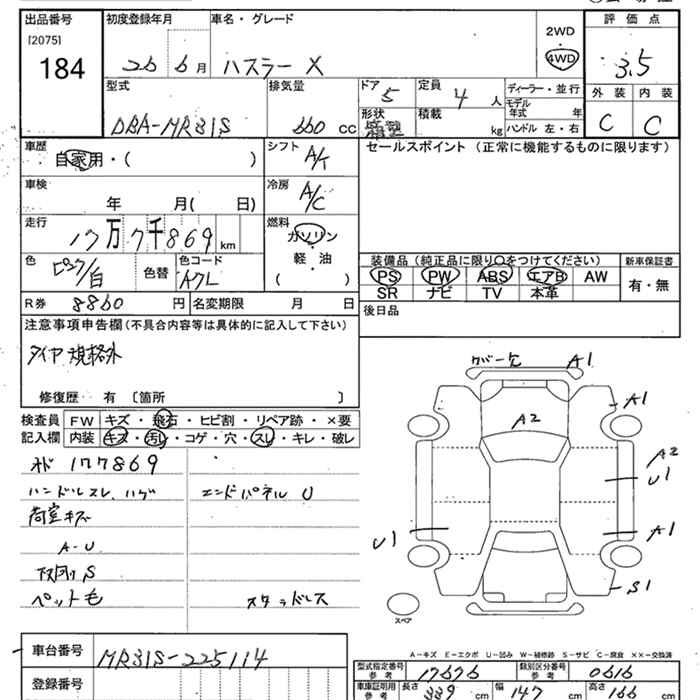 出品番号 初度登録年月 車名・グレード 評価点
[2075] 184 26 6月 ハスラー X 2WD 4WD 3.5
型式 排気量 ドア 5 定員 4人 ディーラー・並行 外装 内装
DBA-MR31S 660 cc 形状 積載 kg モデル年式 年 C C
ハンドル 左・右
車歴 自家用・( ) シフト A/T セールスポイント (正常に機能するものに限ります)
車検 年 月( 日) 冷房 A/C
走行 17万7千869 km 燃料 ガソリン
軽・油
( )
色 ピンク/白 色替 色コード A7L 装備品 (純正品に限り○をつけてください) 新車保証書
PS PW ABS エアB AW 有・無
SR ナビ TV 本革
R券 8860円 名変期限 月 日 後日品
注意事項申告欄 (不具合内容等は具体的に記入して下さい)
タイヤ規格外
修復歴 有 〔箇所 〕
検査員 FW キズ・飛石・ヒビ割・リペア跡・×要
記入欄 内装 キズ・汚レ・コゲ・穴・スレ・キレ・破レ
カバー欠 A1
A1
A2
A2
U1
A1
U1
S1
スペア
オド 177869
ハンドルスレ、ハゲ エンドパネル U
荷室キズ
A-U
下廻り S
ペット毛 スタッドレス
車台番号 MR31S-225114
登録番号
A-キズ E-エクボ U-凹み W-補修跡 S-サビ C-腐食 ××-交換済
型式指定番号 参考 17676 類別区分番号 参考 0616
車庫証明用 参考 長さ 339 cm 幅 147 cm 高さ 166 cm